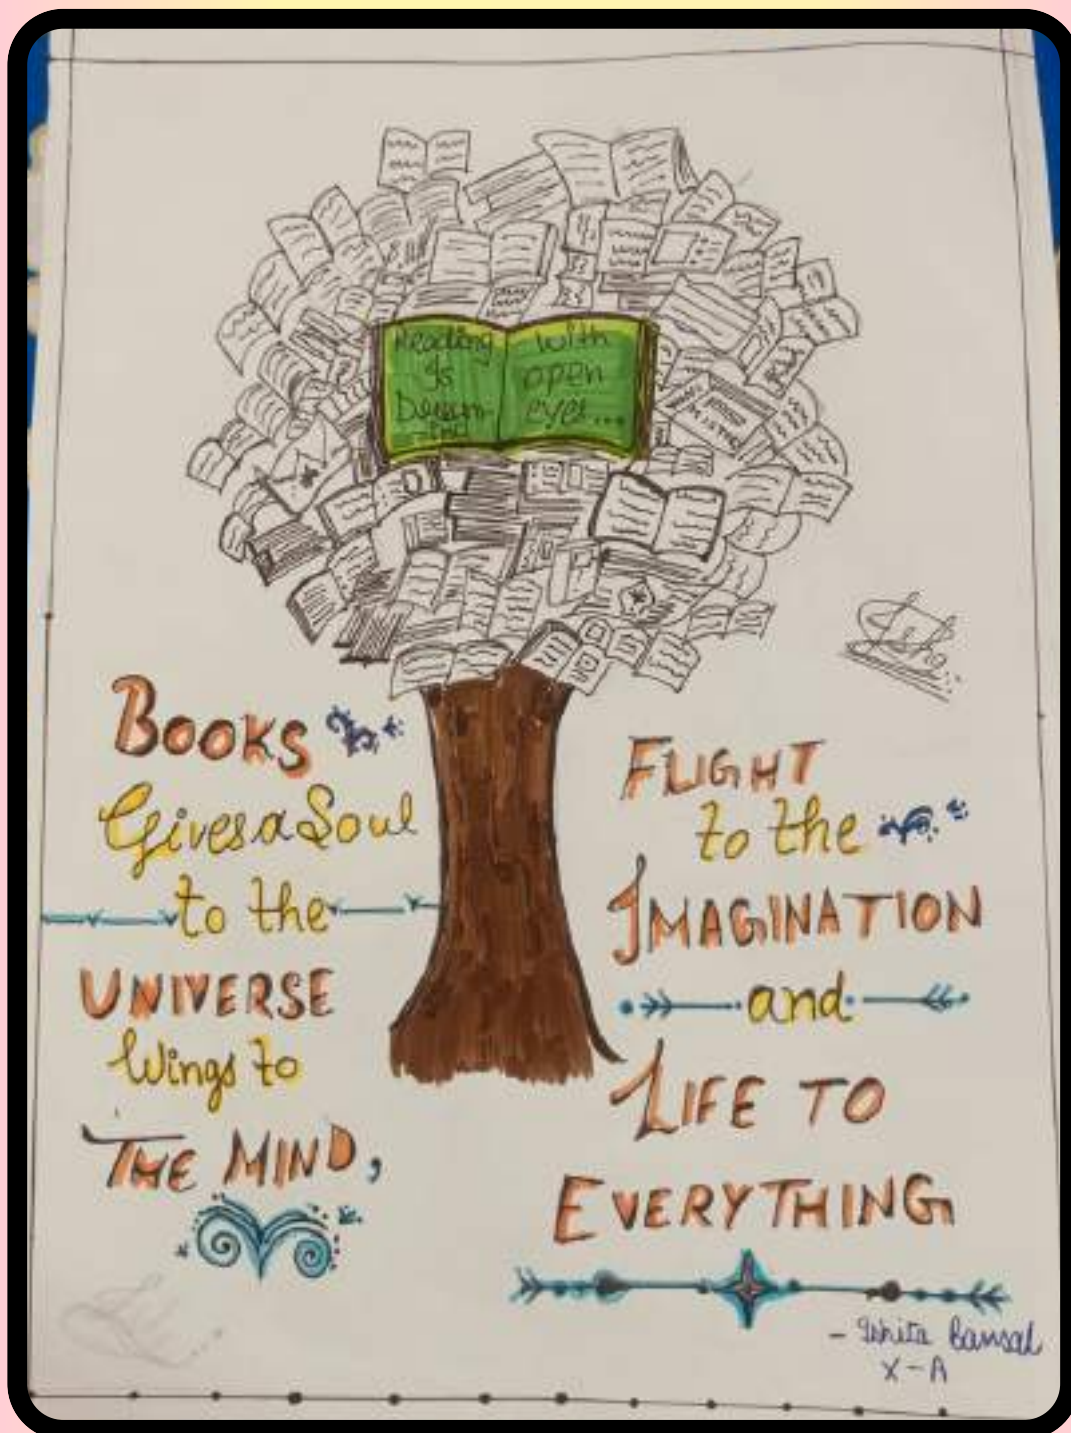 Reading
Is
with
open
eyes...
BOOKS
Gives a Soul
to the
UNIVERSE
Wings to
THE MIND,
FLIGHT
to the
IMAGINATION
and
LIFE TO
EVERYTHING
- Ishita Bansal
X-A